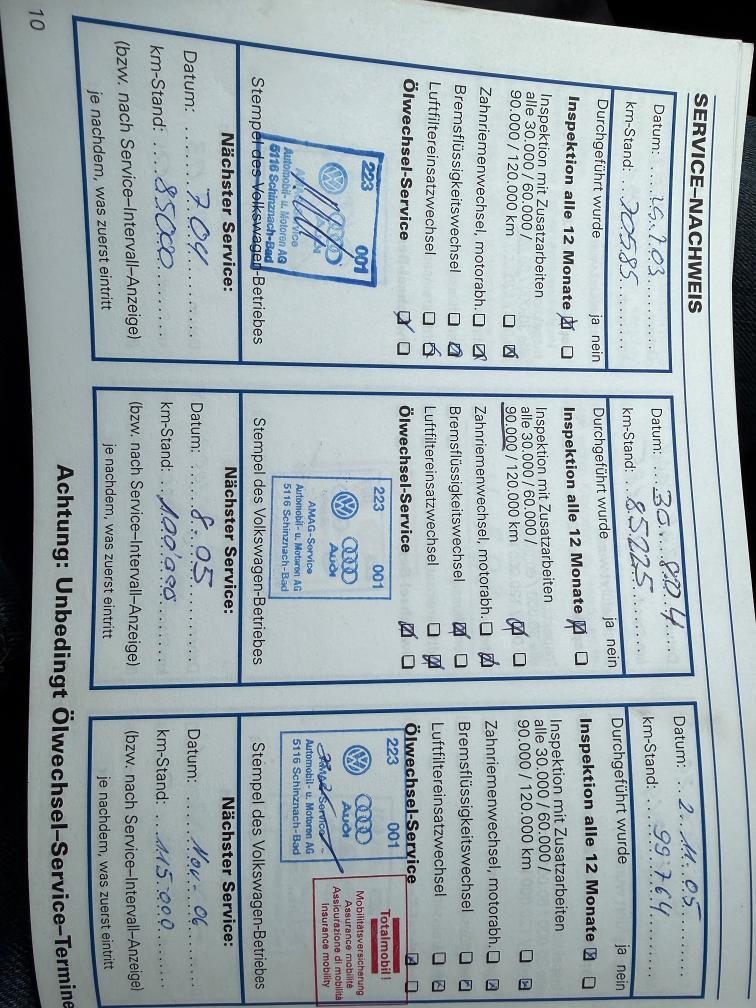 SERVICE–NACHWEIS
Datum: 15.7.03
km-Stand: 70585
Durchgeführt wurde ja nein
Inspektion alle 12 Monate
Inspektion mit Zusatzarbeiten
alle 30.000 / 60.000 /
90.000 / 120.000 km
Zahnriemenwechsel, motorabh.
Bremsflüssigkeitswechsel
Luftfiltereinsatzwechsel
Ölwechsel-Service
223 001
Automobil- u. Motoren AG
5116 Schinznach-Bad
Stempel des Volkswagen-Betriebes
Nächster Service:
Datum: 7.04
km-Stand: 85000
(bzw. nach Service–Intervall–Anzeige)
je nachdem, was zuerst eintritt
Datum: 30.8.04
km-Stand: 85225
Durchgeführt wurde ja nein
Inspektion alle 12 Monate
Inspektion mit Zusatzarbeiten
alle 30.000 / 60.000 /
90.000 / 120.000 km
Zahnriemenwechsel, motorabh.
Bremsflüssigkeitswechsel
Luftfiltereinsatzwechsel
Ölwechsel-Service
223 001
Audi
AMAG-Service
Automobil- u. Motoren AG
5116 Schinznach-Bad
Stempel des Volkswagen-Betriebes
Nächster Service:
Datum: 8.05
km-Stand: 100'000
(bzw. nach Service–Intervall–Anzeige)
je nachdem, was zuerst eintritt
Datum: 2.11.05
km-Stand: 99.764
Durchgeführt wurde ja nein
Inspektion alle 12 Monate
Inspektion mit Zusatzarbeiten
alle 30.000 / 60.000 /
90.000 / 120.000 km
Zahnriemenwechsel, motorabh.
Bremsflüssigkeitswechsel
Luftfiltereinsatzwechsel
Ölwechsel-Service
223 001
Audi
AMAG-Service
Automobil- u. Motoren AG
5116 Schinznach-Bad
Totalmobil!
Mobilitätsversicherung
Assurance mobilité
Assicurazione di mobilità
Insurance mobility
Stempel des Volkswagen-Betriebes
Nächster Service:
Datum: Nov. 06
km-Stand: 115.000
(bzw. nach Service–Intervall–Anzeige)
je nachdem, was zuerst eintritt
Achtung: Unbedingt Ölwechsel–Service–Termine
10